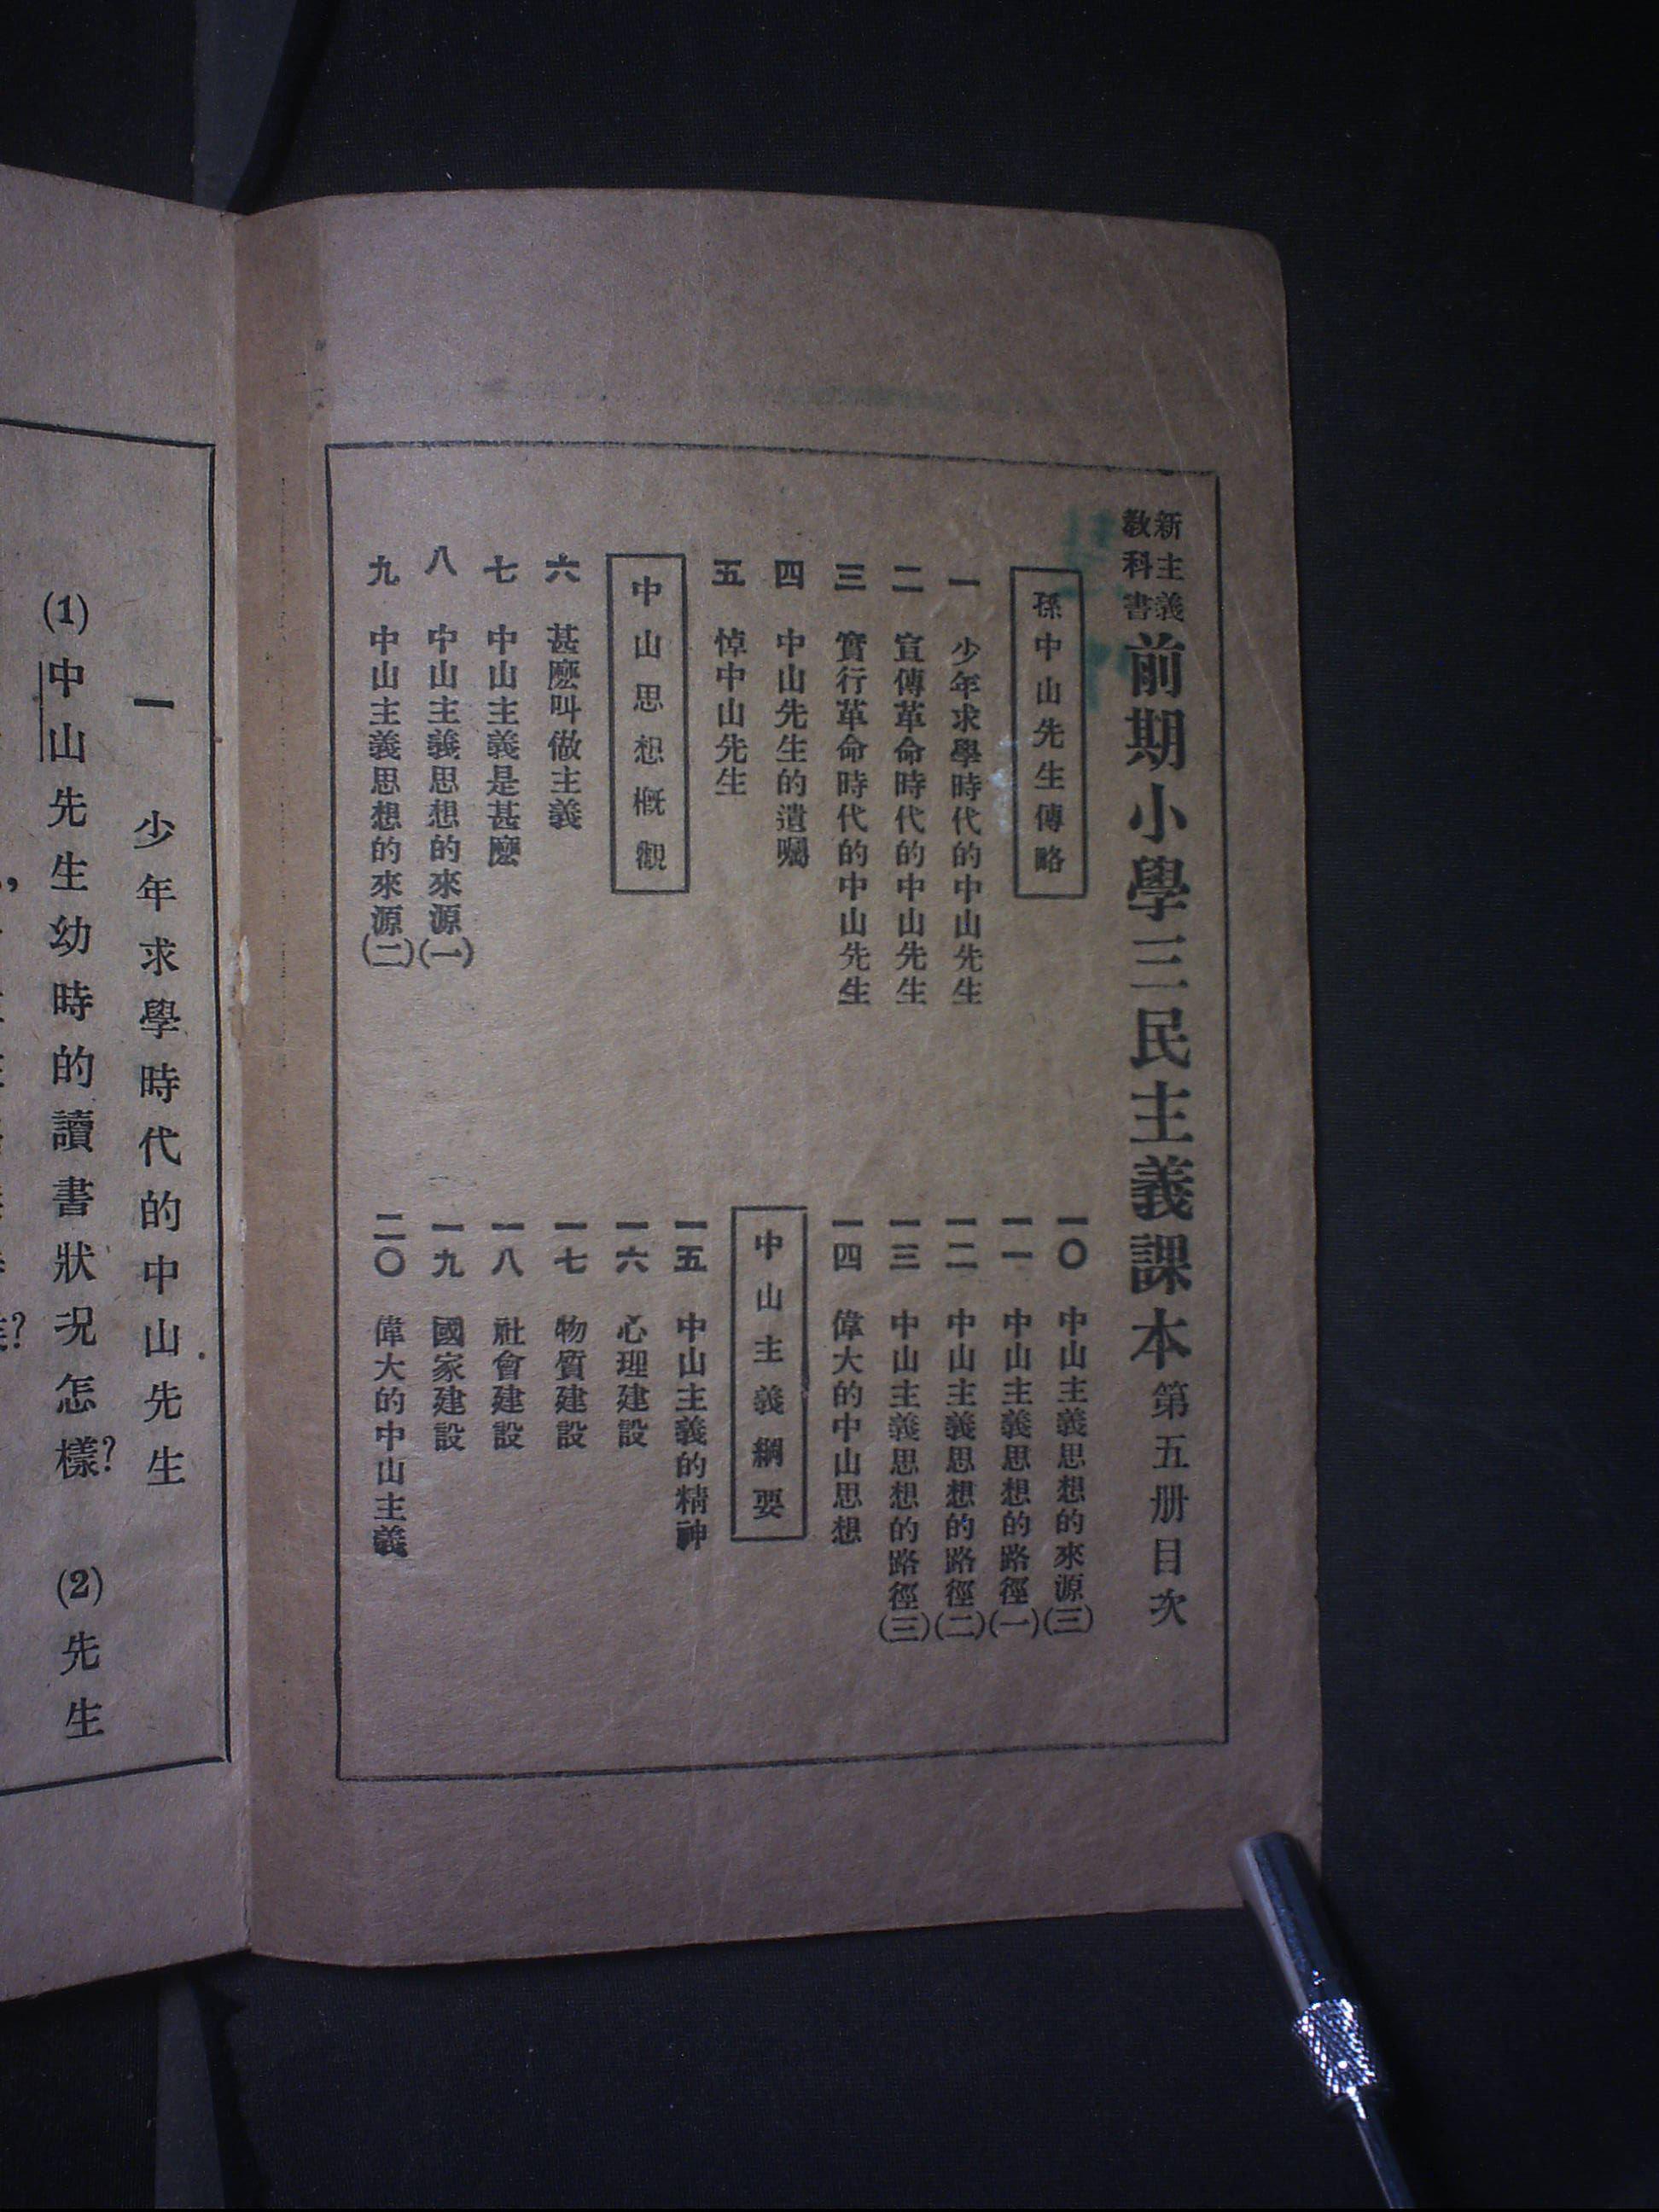 新主義
教科書
前期小學三民主義課本 第五册目次
孫中山先生傳略
一 少年求學時代的中山先生
二 宣傳革命時代的中山先生
三 實行革命時代的中山先生
四 中山先生的遺囑
五 悼中山先生
中山思想概觀
六 甚麽叫做主義
七 中山主義是甚麽
八 中山主義思想的來源(一)
九 中山主義思想的來源(二)
一〇 中山主義思想的來源(三)
一一 中山主義思想的路徑(一)
一二 中山主義思想的路徑(二)
一三 中山主義思想的路徑(三)
一四 偉大的中山思想
中山主義綱要
一五 中山主義的精神
一六 心理建設
一七 物質建設
一八 社會建設
一九 國家建設
二〇 偉大的中山主義
一 少年求學時代的中山先生
(1)中山先生幼時的讀書狀況怎樣? (2)先生